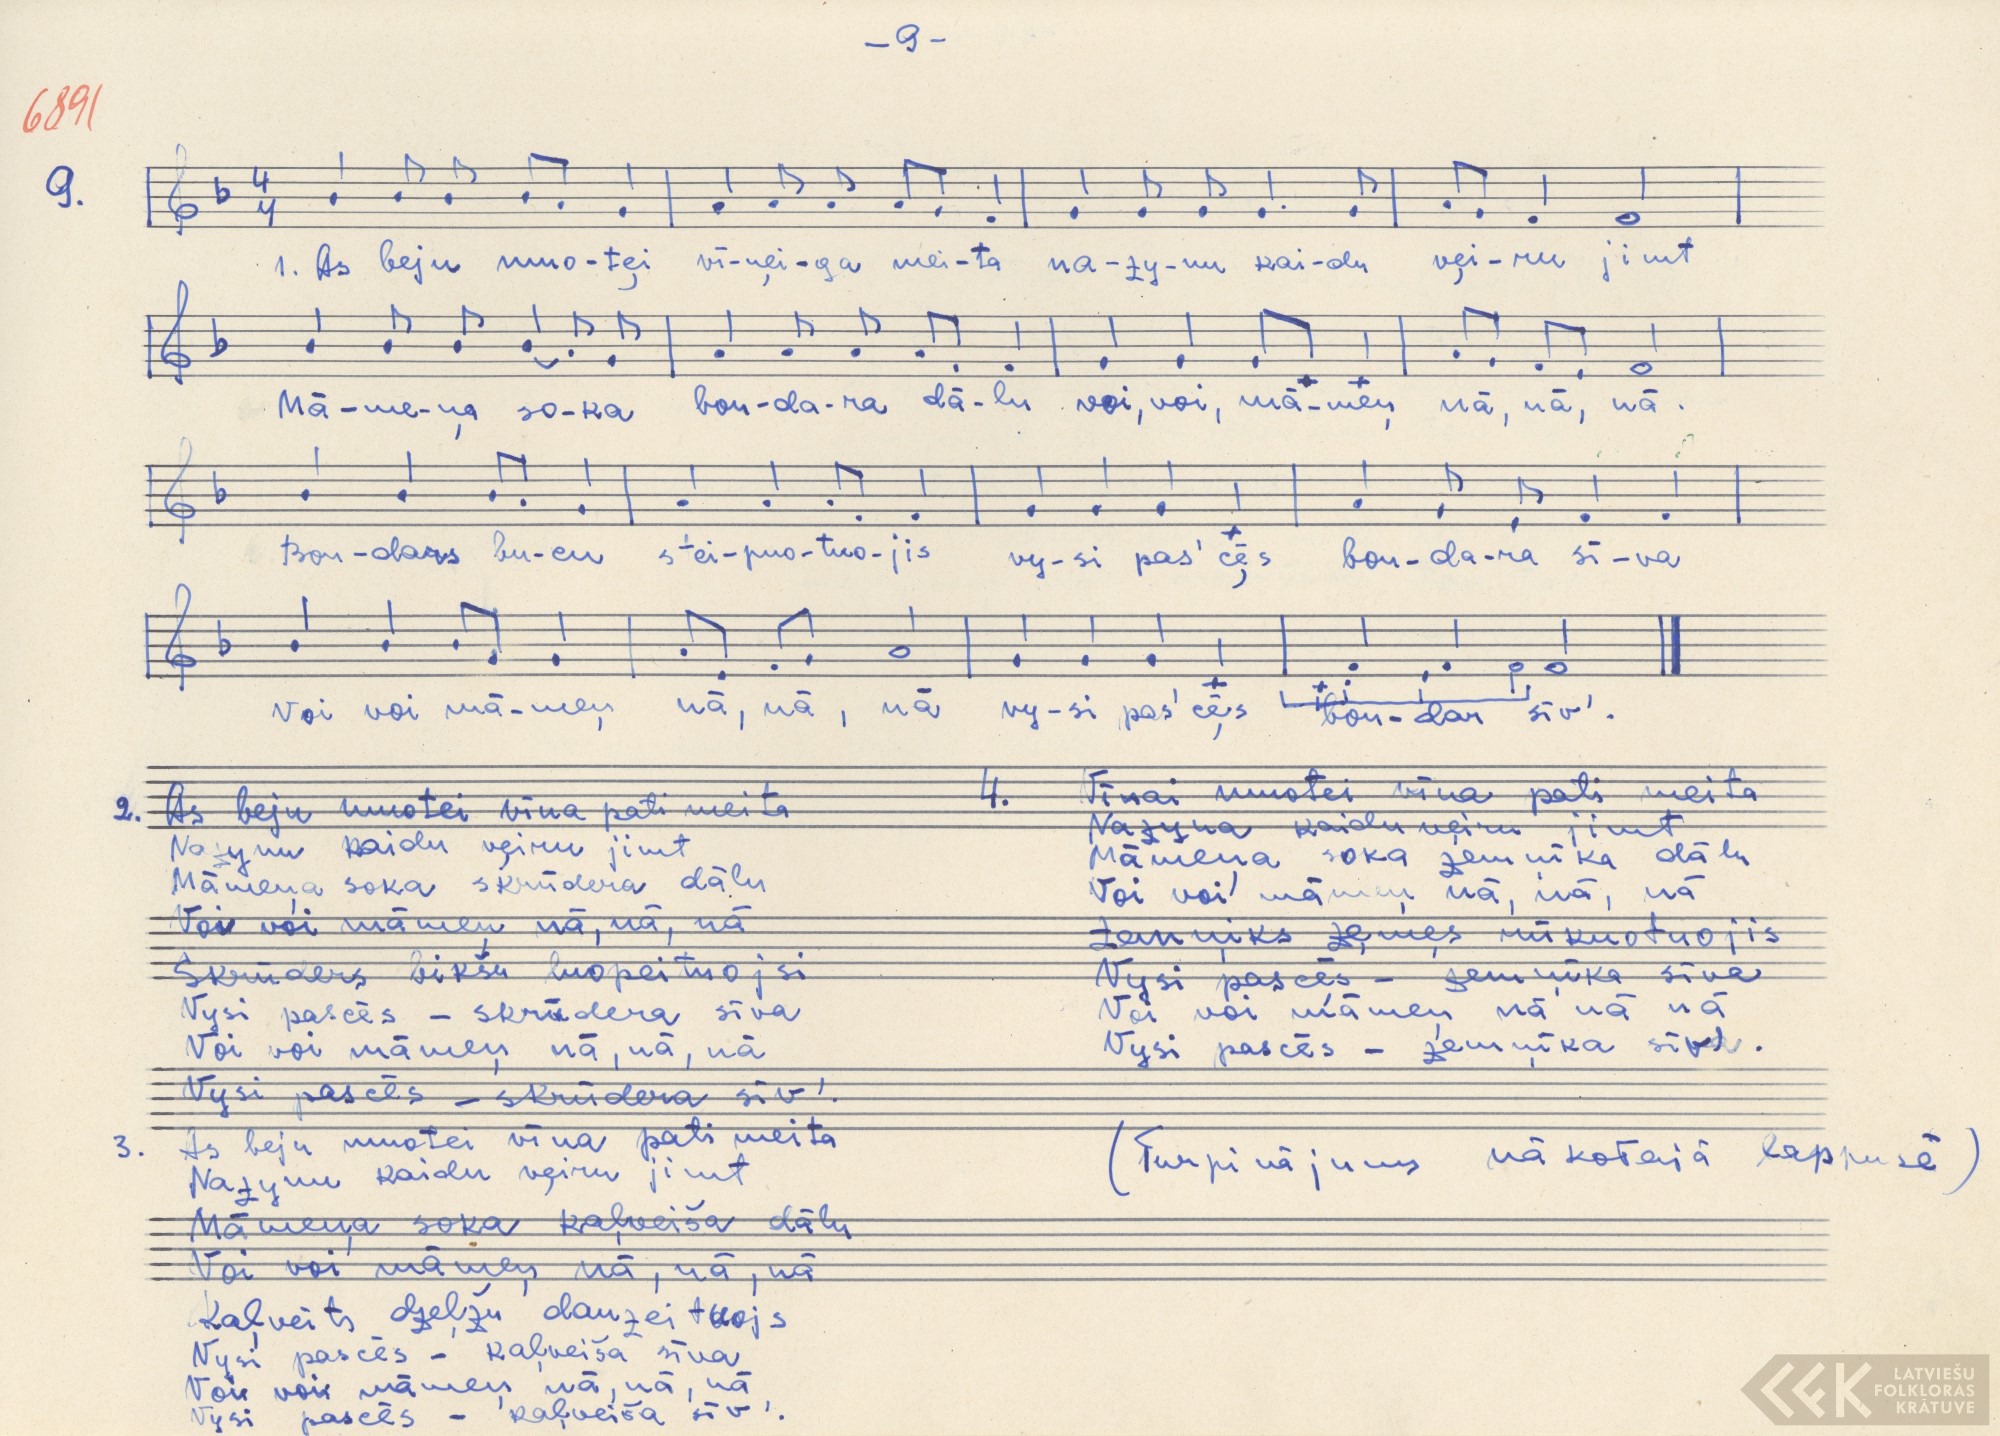 -9-
6891
9.
4
4
1. As beju muo-tei vī-ņei-ga mei-ta na-zy-nu kai-du vei-ru jimt
Mā-me-ņa so-ka bon-da-ra dā-lu voi, voi, mā-meņ nā, nā, nā.
Bon-dars bu-cu s'tei-puo-tuo-jis vy-si pas' cēs bon-da-ra sī-va
Voi voi mā-meņ nā, nā, nā vy-si pas' cēs bon-dar sīv'.
2. As beju muotei vīna pati meita
Nazynu kaidu veiru jimt
Māmeņa soka skrūdera dālu
Voi voi māmeņ nā, nā, nā
Skrūders bikšu luopeituojsi
Vysi pascēs - skrūdera sīva
Voi voi māmeņ nā, nā, nā
Vysi pascēs - skrūdera sīv'.
3. As beju muotei vīna pati meita
Nazynu kaidu veiru jimt
Māmeņa soka kaļveiša dālu
Voi voi māmeņ nā, nā, nā
Kaļveits dzeļžu dauzeituojs
Vysi pascēs - kaļveiša sīva
Voi voi māmeņ nā, nā, nā
Vysi pascēs - kaļveiša sīv'.
4. Vīnai muotei vīna pati meita
Nazyna kaidu veiru jimt
Māmeņa soka zemnīka dālu
Voi voi māmeņ nā, nā, nā
Zemņiks zemes rūkuotuojis
Vysi pascēs - zemņīka sīva
Voi voi māmeņ nā nā nā
Vysi pascēs - zemņīka sīv'.
(Turpinājums nākotajā lappusē)
LATVIEŠU
FOLKLORAS
KRĀTUVE